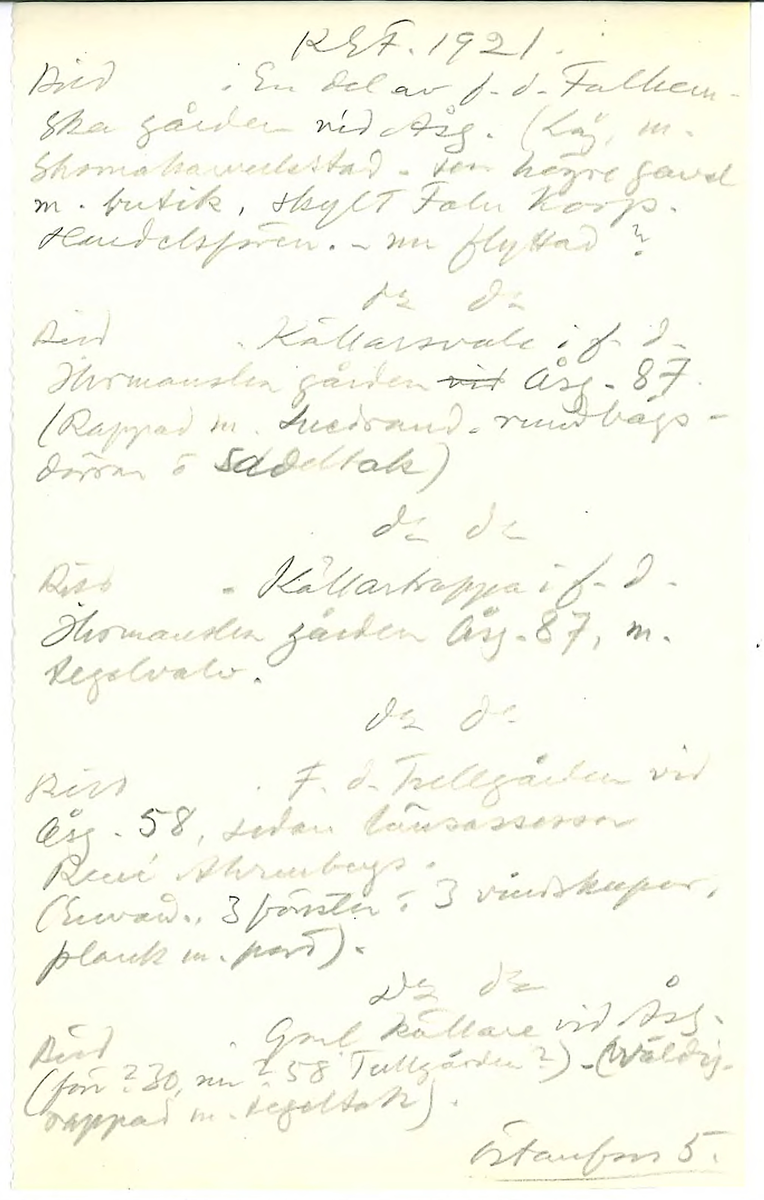 KEF. 1921.
Bild . En del av f. d. Falkem-
ska gården vid Åsg. (Låg, m.
skomakareverkstad - sen högre gavel
m. butik, skylt Falu Korp.
Handelsfören. - nu flyttad ?
do do
Bild . Källarsvale i f. d.
Thormanska gården vid Åsg. 87.
(Rappad m. rundbågs-
dörrar o sadeltak)
do do
Bild . Källartrappa i f. d.
Thormanska gården Åsg. 87, m.
tegelvalv.
do do
Bild . F. d. Tullgården vid
Åsg. 58, sedan länsassessor
René Ahrenbergs.
(Envån., 3 fönster o 3 vindskupor,
plank m. port).
Do do
Bild . Gml källare vid Åsg.
(förr ? 30, nu ? 58 Tullgården ?) - (Wäldig,
rappad m. tegeltak).
Östanfors 5.